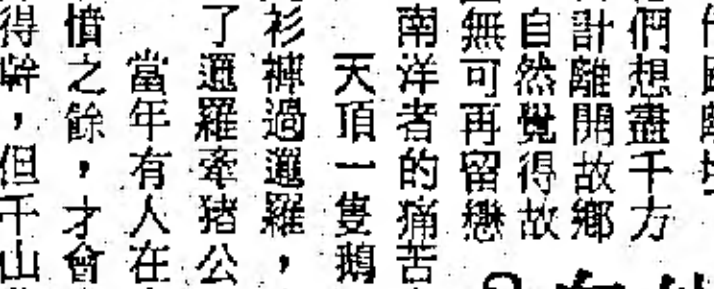 們想盡千方
計離開故鄉
自然覺得故
無可再留戀
南洋者的痛苦
天頂一隻鵝
衫褲過暹羅，
了暹羅牽猪公
當年有人在
憤之餘，才會
得，但千山